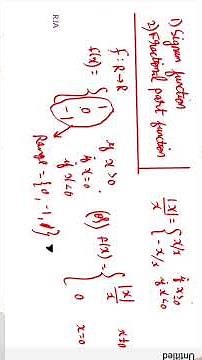 1) Signum function
2) Fractional part function
f : R → R
f(x) = { 1 if x > 0
0 if x = 0
-1 if x < 0
Range = {0, -1, 1}
|x|/x = { x/x if x ≥ 0
-x/x if x < 0
(or) f(x) = { |x|/x x ≠ 0
0 x = 0
RJA
Untitled